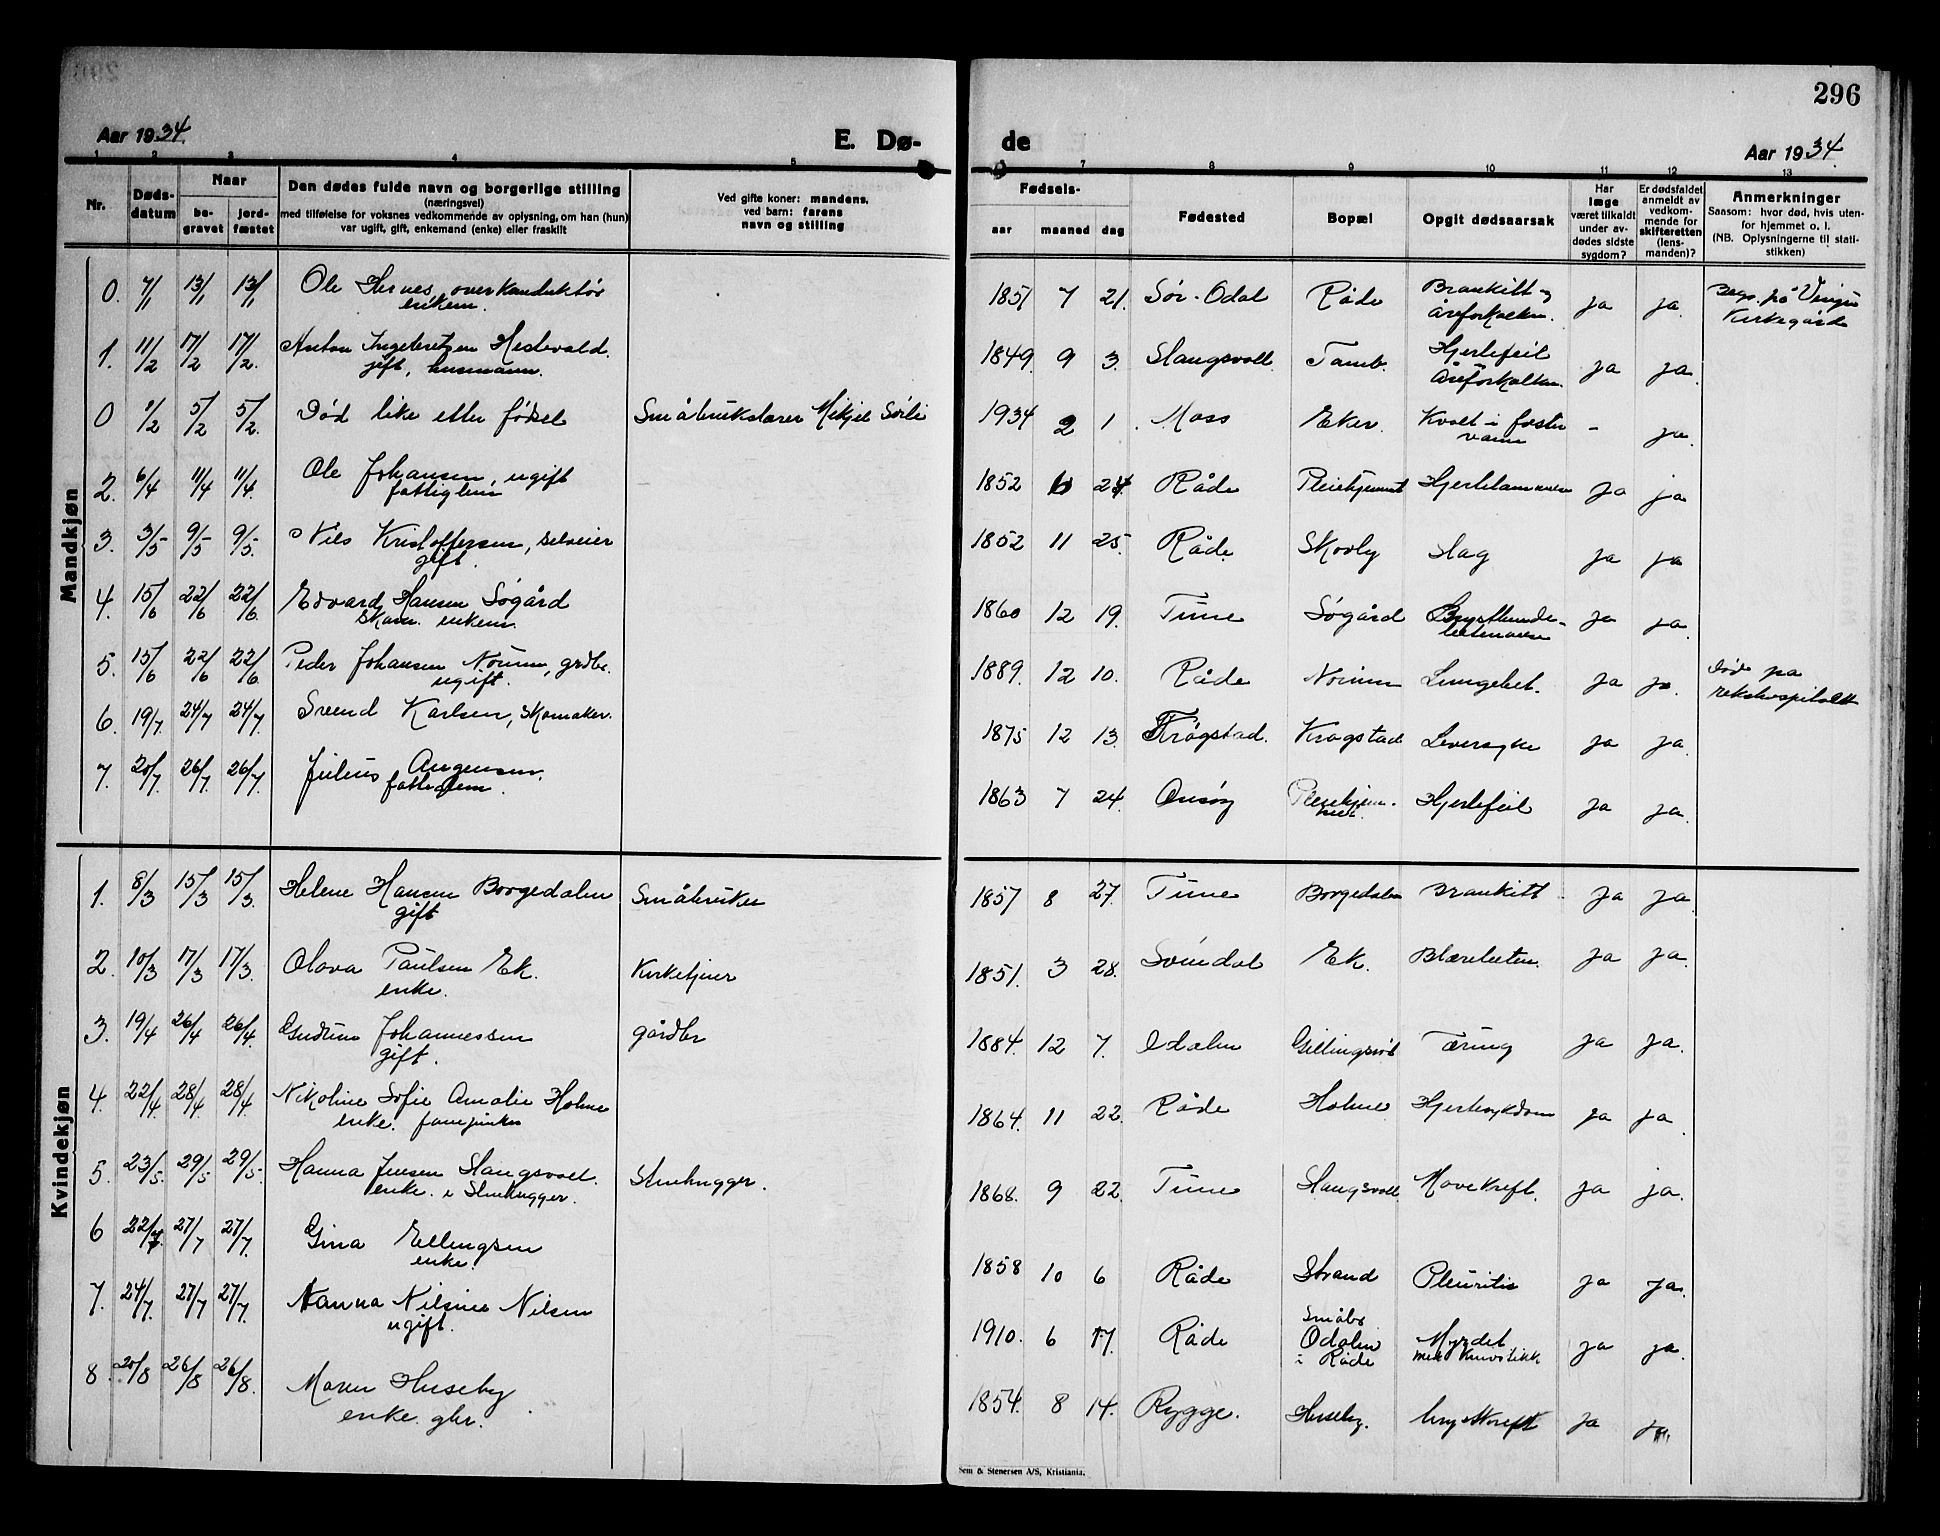 296
Aar 1934.
E. Dø-
de
Aar 1934.
1 2 3 4 5 6 7 8 9 10 11 12 13
Nr.
Døds-
datum
Naar
be-
gravet
jord-
fæstet
Den dødes fulde navn og borgerlige stilling
(næringsvei)
med tilføielse for voksnes vedkommende av oplysning, om han (hun)
var ugift, gift, enkemand (enke) eller fraskilt
Ved gifte koner: mandens,
ved barn: farens
navn og stilling
Fødsels-
aar maaned dag
Fødested
Bopæl
Opgit dødsaarsak
Har
læge
været tilkaldt
under av-
dødes sidste
sygdom?
Er dødsfaldet
anmeldt av
vedkom-
mende for
skifteretten
(lens-
manden)?
Anmerkninger
Saasom: hvor død, hvis uten-
for hjemmet o. l.
(NB. Oplysningerne til stati-
stikken)
Mandkjøn
0. 7/1 13/1 13/1 Ole Hernes, overkonduktør
enkem.
1851 7 21. Sør-Odal Råde Bronkitt og
Åreforkalkn. ja ja. Begr. på
Kirkegård
1. 11/2 17/2 17/2. Anton Ingebretsen Hestevold.
gift, husmann.
1849. 9 3. Slangsvoll Tomb. Hjertefeil
Åreforkalkn. ja ja.
0 1/2 5/2 5/2. Død like etter fødsel Småbrukslærer Mikjel Sørli
1934 2 1. Moss Eker. Kvalt i foster
vann - ja.
2. 6/4 11/4 11/4. Ole Johansen, ugift
fattiglem
1852 6 24. Råde Pleiehjemmet Hjertelammelse ja ja
3. 3/5 9/5 9/5. Nils Kristoffersen, selveier
gift.
1852 11 25. Råde Skovly Slag ja ja
4. 15/6 22/6 22/6. Edvard Hansen Søgård
Skom. enkem.
1860 12 19. Tune Søgård ja ja.
5. 15/6 22/6 22/6. Peder Johansen grdbr.
ugift.
1889. 12 10. Råde Lungebet. ja ja. Døde på
rikshospitalet
6. 19/7. 24/7 24/7. Svend Karlsen, skomaker.
1875 12 13. Krogstad Leversyke ja ja.
7. 20/7. 26/7. 26/7. Julius
fattiglem.
1863 7 24. Onsøy Pleiehjem-
met. Hjertefeil ja ja.
Kvindekjøn
1. 8/3 15/3 15/3. Helene Hansen Borgedalen Småbruker
gift
1857 8 27. Tune Borgedalen Bronkitt ja ja.
2. 10/3 17/3 17/3. Olava Paulsen Ek. Kirketjener
enke.
1851. 3 28. Svindal Ek. ja ja.
3. 19/4 26/4 26/4. Gudrun Johannessen gårdbr
gift.
1884. 12 7. Odalen Tæring ja ja.
4. 22/4. 28/4 28/4. Nikoline Sofie Amalie Holme
enke.
1864. 11 22. Råde Holme Hjertesykdom ja ja.
5. 23/5. 29/5 29/5. Hanna Jensen Slangsvoll. Stenhugger.
enke. e Stenhugger.
1868. 9 22. Tune Slangsvoll Mavekreft. ja ja.
6 22/7. 27/7 27/7. Gina Ellingsen
enke.
1858 10 6 Råde Strand Pleuritis ja ja.
7. 24/7. 27/7 27/7. Nanna Nilsine Nilsen
ugift.
1910. 6 17. Råde Småbr
Odalen
i Råde Myrdet
med knivstikk ja ja.
8. 20/8 26/8 26/8. Maren Huseby
enke. gbr.
1854. 8 14. Rygge. Huseby. brystkreft ja ja
Sem & Stenersen A/S, Kristiania.